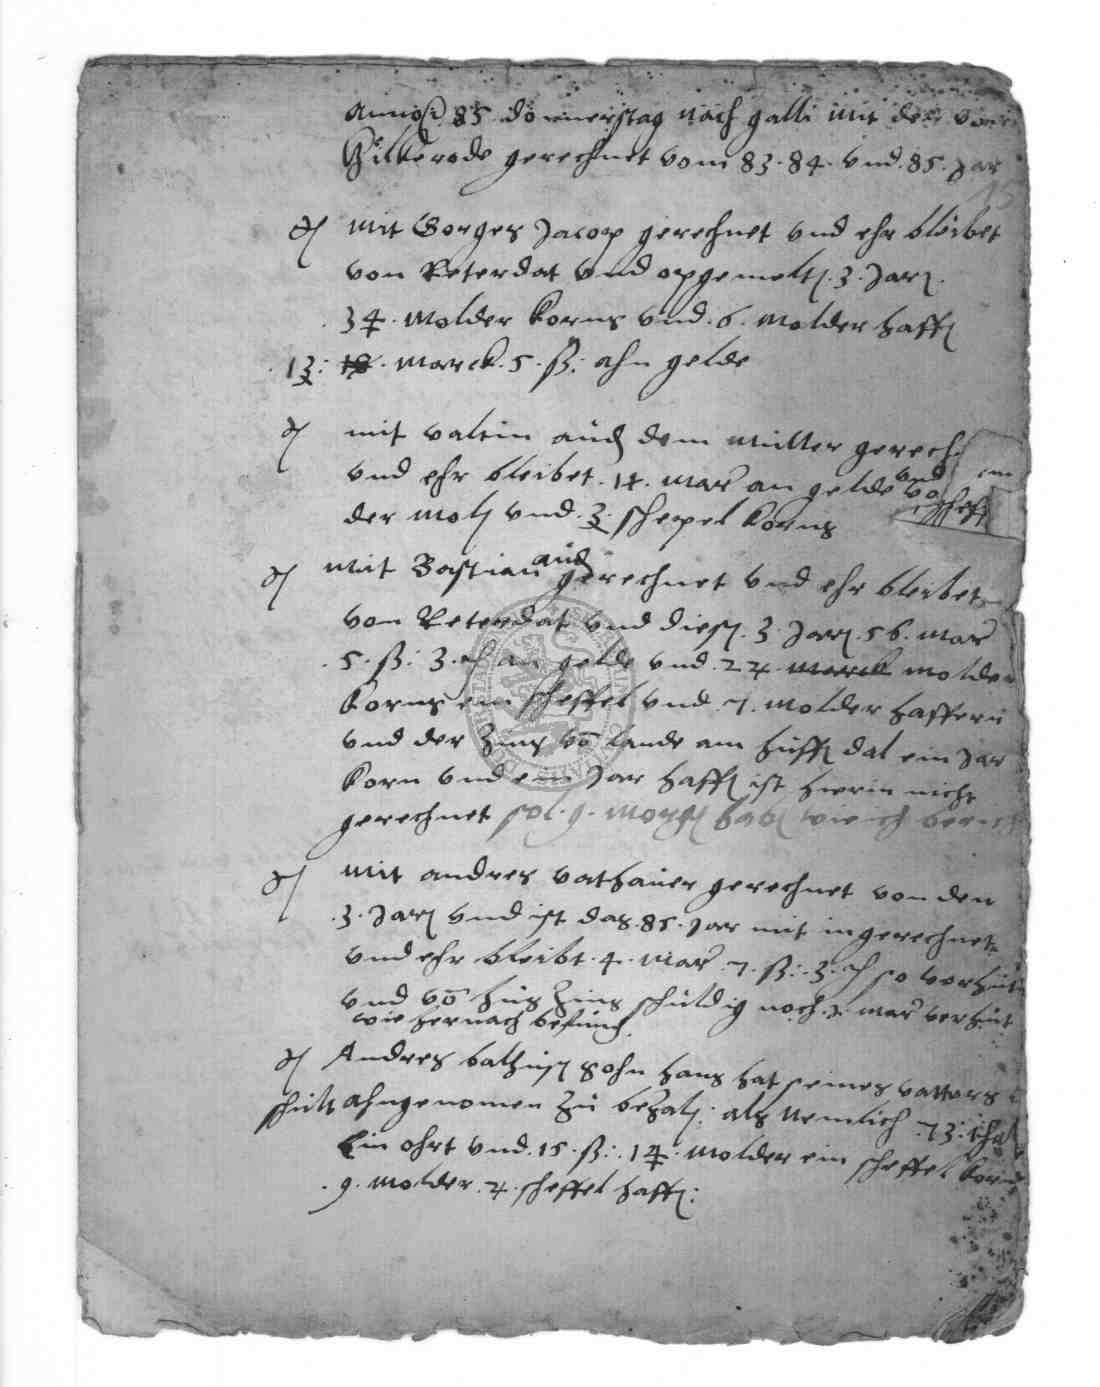 Anno 85 donnerstag nach galli mit den von
Hilkerode gerechnet vom 83. 84. vnd. 85. Jar
15
mit Borges Jacop gerechnet vnd ehr bleibet
von Reterdat vnd opgemelt. 3. Jar.
34. Molder Korns vnd. 6. Molder haff
13: 18. Marck. 5. ß: ahn gelde
mit valtin auch dem Muller gerech
vnd ehr bleibet. 14. Mar an gelde vnd ein
der Mol vnd. 3. schepel Korns vo scheff
mit Bastian auch gerechnet vnd ehr bleibet
von Reterdat vnd dies. 3. Jar. 56. Mar
5. ß: 3. an gelde vnd. 24 marck molder
Korns ein scheffel vnd. 7. Molder haffern
vnd der Zins vo lande am huff dal ein Jar
Korn vnd ein Jar haff ist hierin nicht
gerechnet sol. 9. Morg hab wie ich berich
Mit andres vathauer gerechnet von den
3. Jar vnd ist das. 85. Jar mit in gerechnet
vnd ehr bleibt. 4. Mar. 7. ß: 3. so
vnd vo hus Zins schuldig noch mar
wie hernach befund
Andres sohn hans hat seines vatters
schult ahngenomen zu bezal: als Nemlich. 73: thal
Ein ohrt vnd. 15. ß: 14. Molder ein scheffel Korn
9. Molder. 4. scheffel haff: